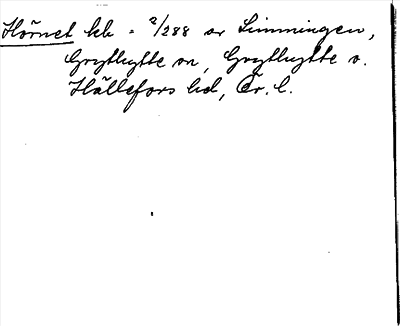 Hörnet kb = 2/288 av Limmingen,
Grythytte sn, Grythytte o.
Hällefors hd, Ör. l.